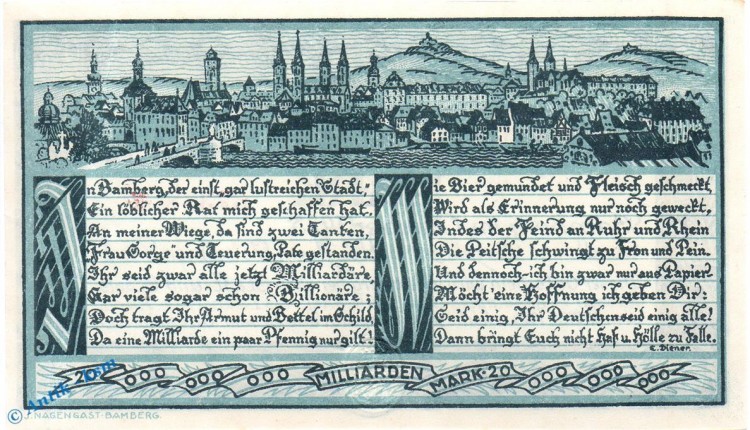 In Bamberg, der einst, gar lustreichen Stadt,
Ein löblicher Rat mich geschaffen hat.
An meiner Wiege, da sind zwei Tanten,
Frau Sorge und Teuerung, Pate gestanden.
Ihr seid zwar alle jetzt Milliardäre
Gar viele sogar schon Billionäre;
Doch tragt Ihr Armut und Bettel im Schild,
Da eine Milliarde ein paar Pfennig nur gilt!
Wie Bier gemundet und Fleisch geschmeckt,
Wird als Erinnerung nur noch geweckt,
Indes der Feind an Ruhr und Rhein
Die Peitsche schwingt zu Fron und Pein.
Und dennoch-ich bin zwar nur aus Papier
Möcht eine Hoffnung ich geben Dir:
Seid einig, Ihr Deutschen seid einig alle!
Dann bringt Euch nicht Haß u. Hölle zu Falle.
E. Diener.
20 000 000 000 MILLIARDEN MARK·20 000 000 000
J. NAGENGAST-BAMBERG.